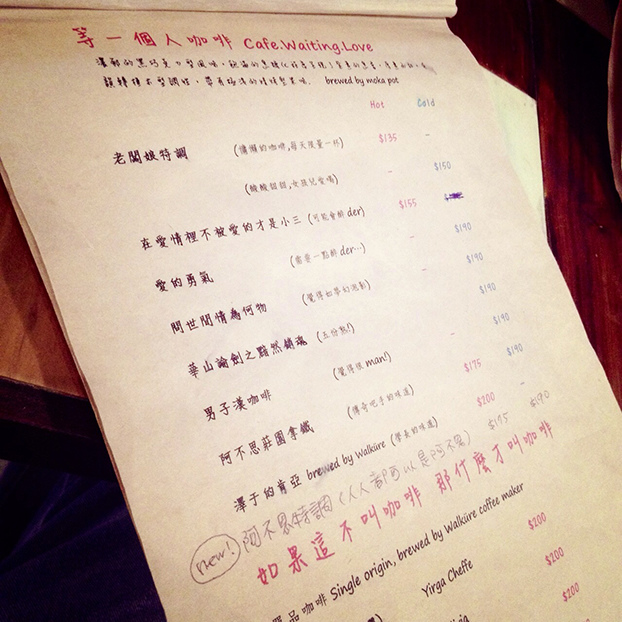 等一個人咖啡 Cafe.Waiting.Love
brewed by moka pot
Hot Cold
老闆娘特調 (慵懶的咖啡,每天限量一杯) $135 -
(酸酸甜甜,女孩兒愛喝) - $150
在愛情裡不被愛的才是小三 (可能會醉 der) $155
愛的勇氣 (需要一點醉 der...) - $190
問世間情為何物 (覺得如夢幻泡影) - $190
華山論劍之黯然銷魂 (五份熱!) - $190
男子漢咖啡 (覺得很 man!) - $190
阿不思莊園拿鐵 (傳奇吧手的味道) $175 $190
澤于的肯亞 brewed by Walküre (學長的味道) $200 -
new! 阿不思特調 (人人都可以是阿不思) $175 $190
如果這不叫咖啡 那什麼才叫咖啡
單品咖啡 Single origin, brewed by Walküre coffee maker
Yirga Cheffe $200
$200
$200